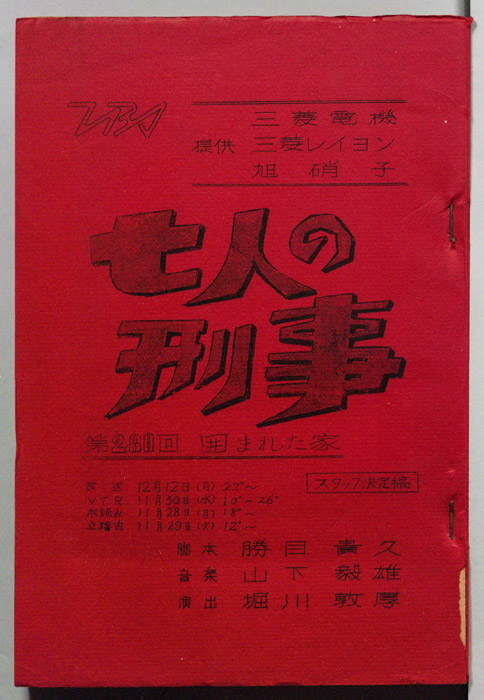 TBS
三菱電機
提供 三菱レイヨン
旭硝子
七人の
刑事
第260回 囲まれた家
放送 12月12日(月) 22°~
VTR 11月30日(水) 10°~26°
本読み 11月28日(月) 18°~
立稽古 11月29日(火) 12°~
スタッフ決定稿
脚本 勝目貴久
音楽 山下毅雄
演出 堀川敦厚